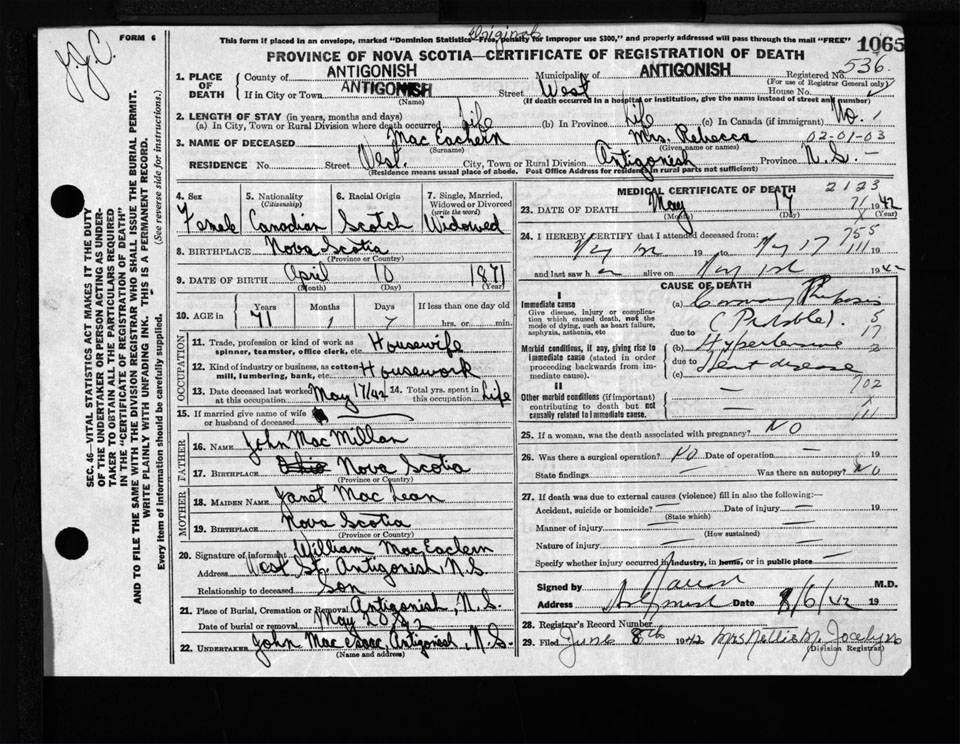 J.J.C.
FORM 6
This form if placed in an envelope, marked "Dominion Statistics—Free, penalty for improper use $300," and properly addressed will pass through the mail "FREE"
Original
1065
PROVINCE OF NOVA SCOTIA—CERTIFICATE OF REGISTRATION OF DEATH
536.
1. PLACE OF DEATH County of ANTIGONISH Municipality of ANTIGONISH Registered No.
(For use of Registrar General only)
If in City or Town ANTIGONISH Street West House No.
(Name) (If death occurred in a hospital or institution, give the name instead of street and number)
2. LENGTH OF STAY (in years, months and days)
(a) In City, Town or Rural Division where death occurred Life (b) In Province Life (c) In Canada (if immigrant) No. 1
3. NAME OF DECEASED Mac Eachern Mrs. Rebecca 02-01-03
(Surname) (Given name or names)
RESIDENCE No. Street West. City, Town or Rural Division Antigonish Province N.S. —
(Residence means usual place of abode. Post Office Address for residence in rural parts not sufficient)
4. Sex 5. Nationality (Citizenship) 6. Racial Origin 7. Single, Married, Widowed or Divorced (write the word)
Female Canadian Scotch Widowed
8. BIRTHPLACE Nova Scotia
(Province or Country)
9. DATE OF BIRTH April 10 1871
(Month) (Day) (Year)
10. AGE in Years Months Days If less than one day old
71 1 7 hrs. or min.
OCCUPATION
11. Trade, profession or kind of work as spinner, teamster, office clerk, etc. Housewife
12. Kind of industry or business, as cotton mill, lumbering, bank, etc. Housework
13. Date deceased last worked at this occupation May 17/42 14. Total yrs. spent in this occupation Life
15. If married give name of wife or husband of deceased
FATHER
16. NAME John Mac Millan
17. BIRTHPLACE Nova Scotia
(Province or Country)
MOTHER
18. MAIDEN NAME Janet Mac Lean
19. BIRTHPLACE Nova Scotia
(Province or Country)
20. Signature of informant William Mac Eachern
Address West St. Antigonish N.S.
Relationship to deceased Son
21. Place of Burial, Cremation or Removal Antigonish, N.S.
Date of burial or removal May 20/42
22. UNDERTAKER John Mac Isaac, Antigonish, N.S.
(Name and address)
MEDICAL CERTIFICATE OF DEATH 2123
23. DATE OF DEATH May 17 71 1942
(Month) (Day) (Year)
24. I HEREBY CERTIFY that I attended deceased from: 755
May 1st 19 to May 17 111 19
and last saw h alive on May 1st 1942
CAUSE OF DEATH
I
Immediate cause (a) Coronary
Give disease, injury or complication which caused death, not the mode of dying, such as heart failure, asphyxia, asthenia, etc
(Probable). 5
due to 17
Morbid conditions, if any, giving rise to immediate cause (stated in order proceeding backwards from immediate cause).
(b) Hypertensive 2
due to Heart disease
(c)
II
Other morbid conditions (if important) contributing to death but not causally related to immediate cause.
— 702
X
— 111
25. If a woman, was the death associated with pregnancy? NO
26. Was there a surgical operation? NO Date of operation — 19
State findings — Was there an autopsy? NO
27. If death was due to external causes (violence) fill in also the following:—
Accident, suicide or homicide? — Date of injury — 19
(State which)
Manner of injury —
(How sustained)
Nature of injury —
Specify whether injury occurred in industry, in home, or in public place
Signed by M.D.
Address Antigonish Date 8/6/42 19
28. Registrar's Record Number
29. Filed June 8th 1942 Mrs Nellie M. Jocelyn
(Division Registrar)
SEC. 46—VITAL STATISTICS ACT MAKES IT THE DUTY
OF THE UNDERTAKER OR PERSON ACTING AS UNDERTAKER TO OBTAIN ALL THE PARTICULARS REQUIRED
IN THE "CERTIFICATE OF REGISTRATION OF DEATH"
AND TO FILE THE SAME WITH THE DIVISION REGISTRAR WHO SHALL ISSUE THE BURIAL PERMIT.
WRITE PLAINLY WITH UNFADING INK. THIS IS A PERMANENT RECORD.
Every item of information should be carefully supplied. (See reverse side for instructions.)